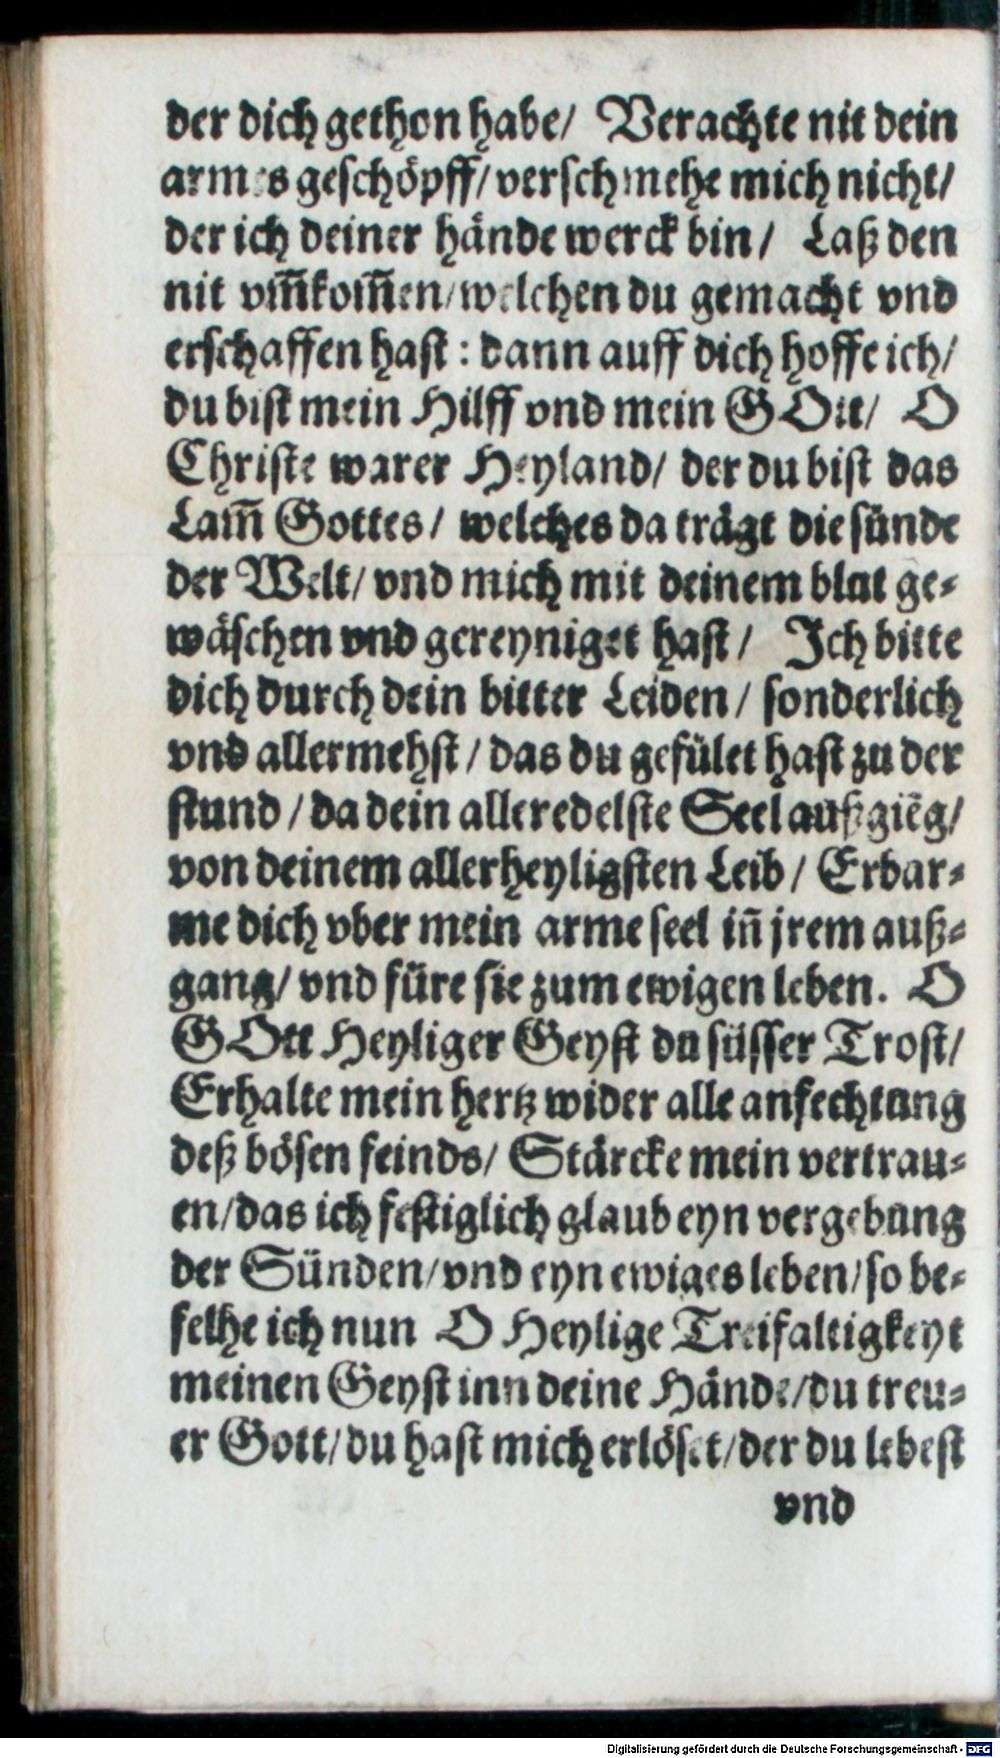 der dich gethon habe/ Verachte nit dein
armes geschöpff/ verschmehe mich nicht/
der ich deiner hände werck bin/ Laß den
nit vm̃kom̃en/ welchen du gemacht vnd
erschaffen hast: dann auff dich hoffe ich/
du bist mein Hilff vnd mein GOtt/ O
Christe warer Heyland/ der du bist das
Lam̃ Gottes/ welches da trägt die sünde
der Welt/ vnd mich mit deinem blut ge-
wäschen vnd gereyniget hast/ Ich bitte
dich durch dein bitter Leiden/ sonderlich
vnd allermehst/ das du gefület hast zu der
stund/ da dein alleredelste Seel außgiẽg/
von deinem allerheyligsten Leib/ Erbar-
me dich vber mein arme seel iñ jrem auß-
gang/ vnd füre sie zum ewigen leben. O
GOtt Heyliger Geyst du süsser Trost/
Erhalte mein hertz wider alle anfechtung
deß bösen feinds/ Stärcke mein vertrau-
en/ das ich festiglich glaub eyn vergebung
der Sünden/ vnd eyn ewiges leben/ so be-
felhe ich nun O Heylige Treifaltigkeyt
meinen Geyst inn deine Hände/ du treu-
er Gott/ du hast mich erlöset/ der du lebest
vnd
Digitalisierung gefördert durch die Deutsche Forschungsgemeinschaft - DFG